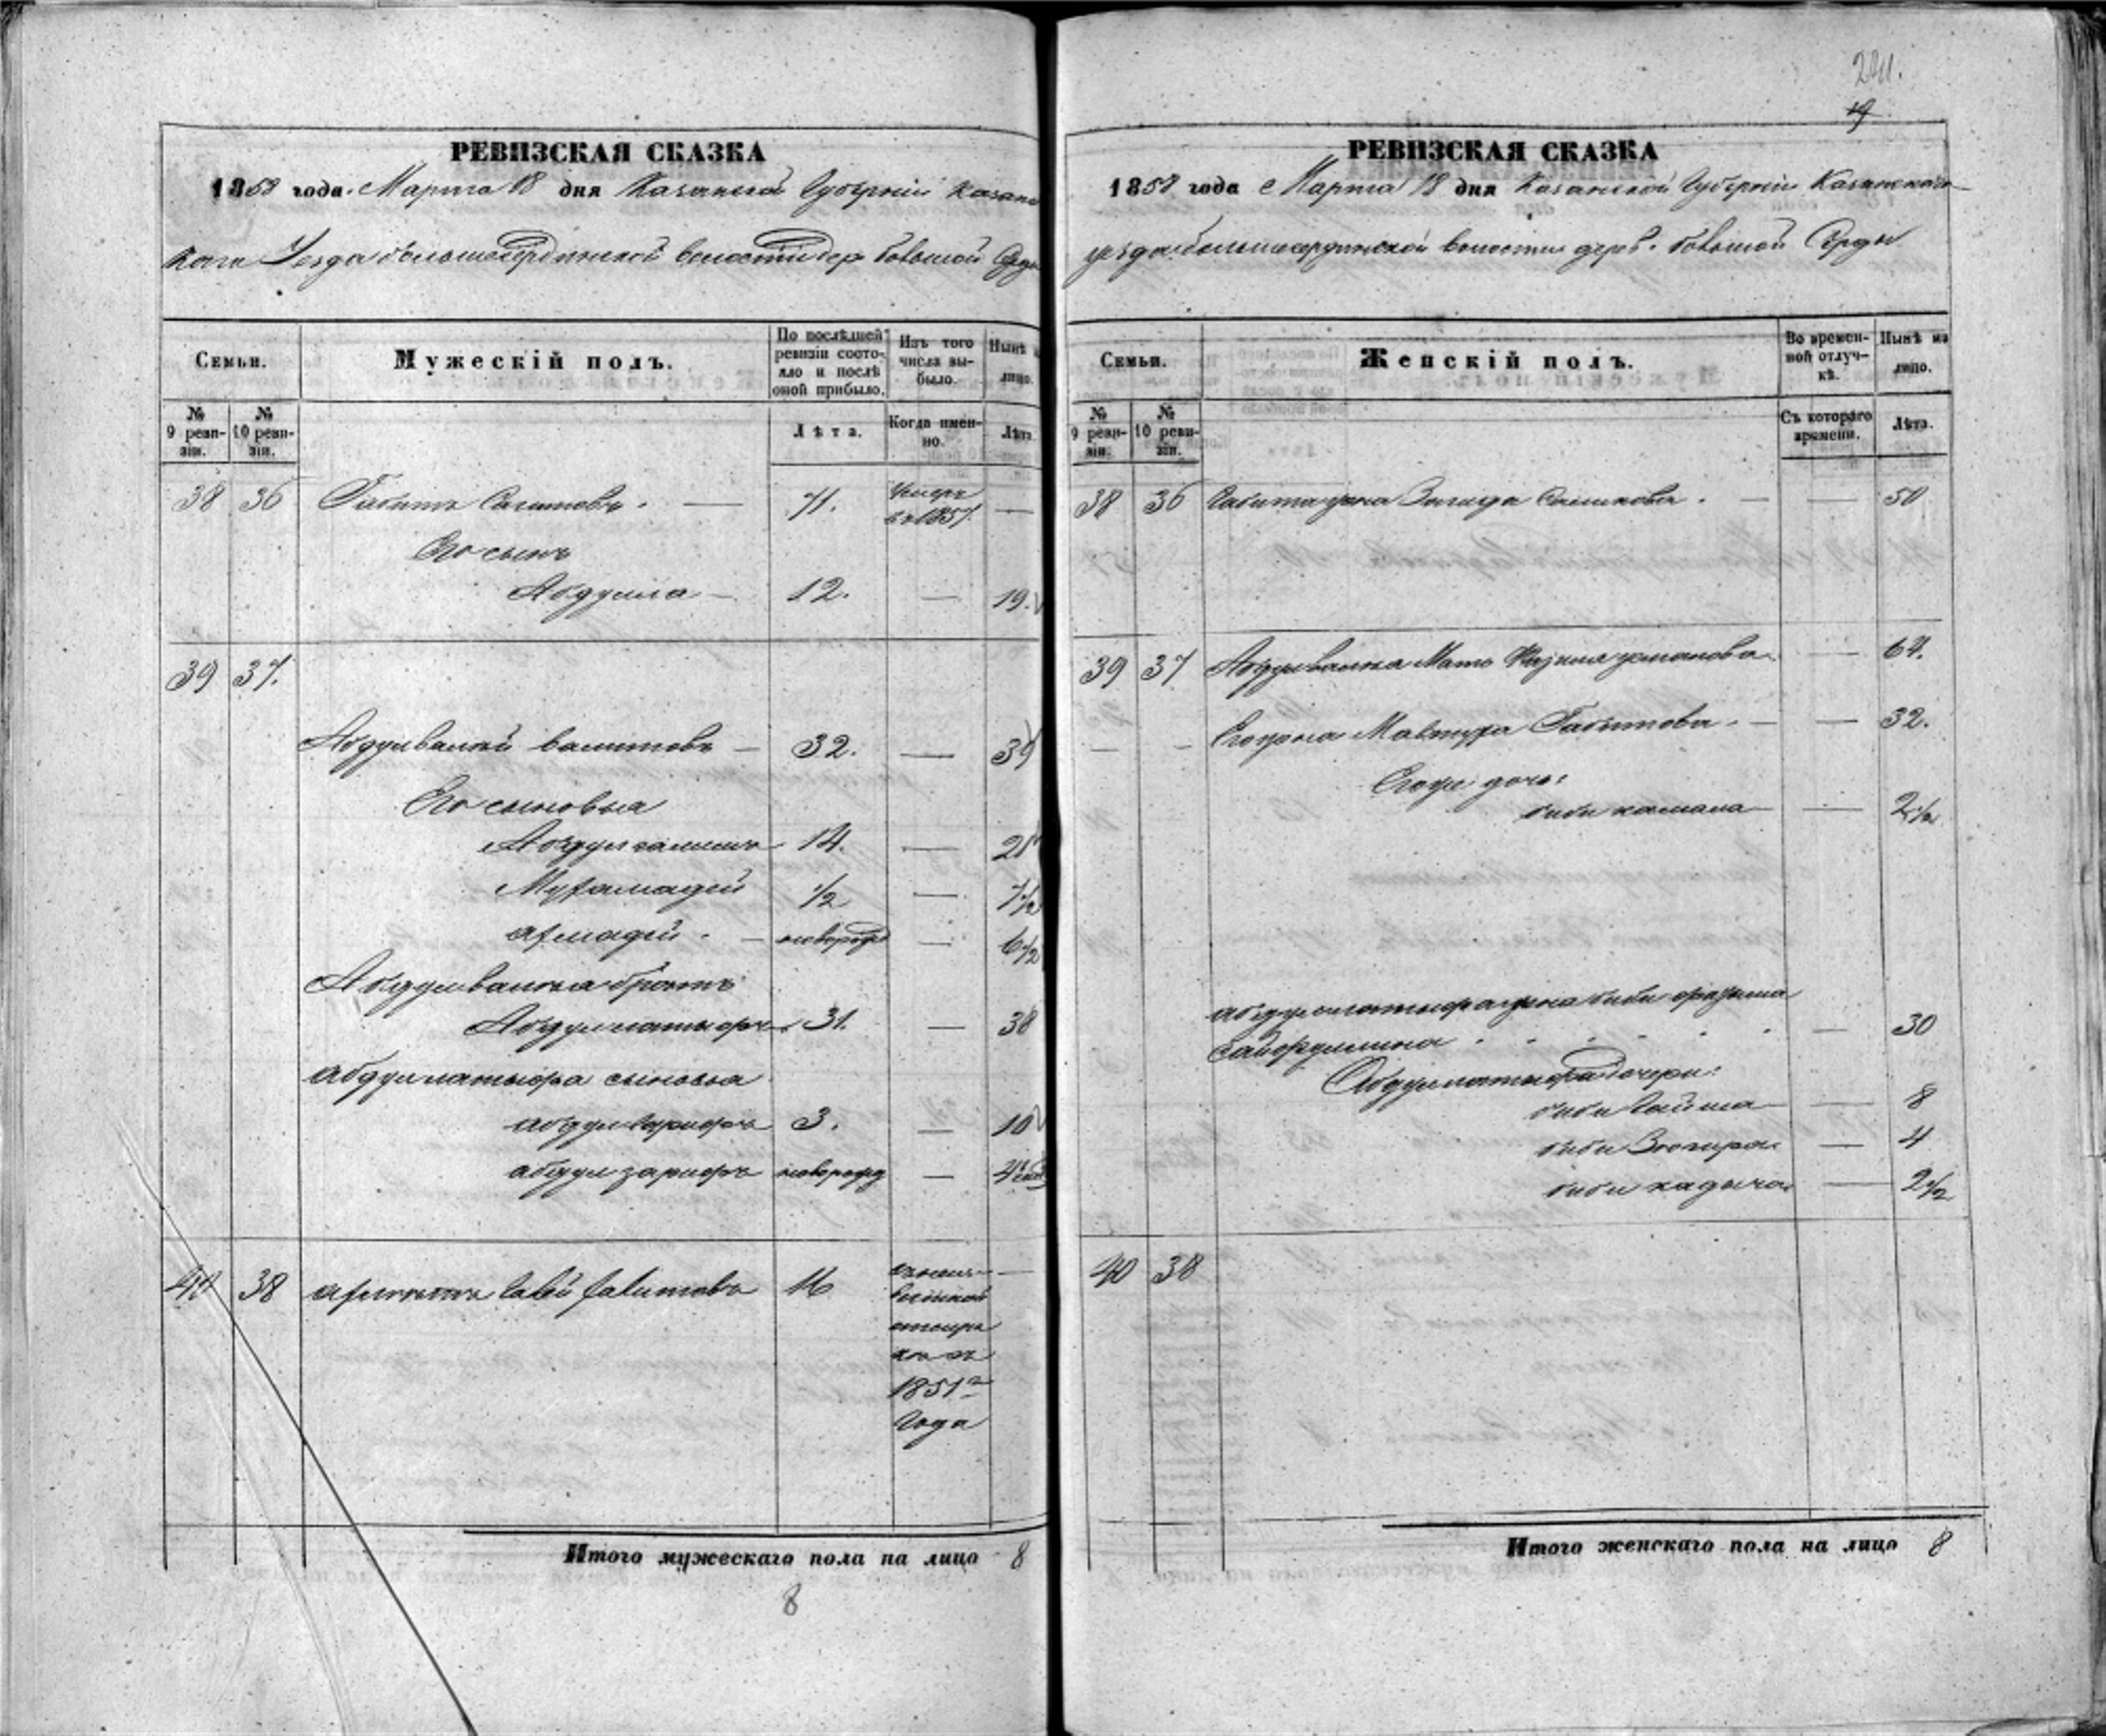 РЕВИЗСКАЯ СКАЗКА
1858 года. Марта 18 дня Казанской Губерніи Казанс
каго Уезда большесердинской волости дер большой Серды
Семьи.
Мужескій полъ.
По послѣдней ревизіи состояло и послѣ оной прибыло.
Изъ того числа выбыло.
Нынѣ на лицо.
№ 9 ревизіи.
№ 10 ревизіи.
Лѣта.
Когда именно.
Лѣта
38 36 Габитъ Сагитовъ. — 71. Умеръ въ 1857. —
Его сынъ
Абдулла — 12. — 19.
39 37.
Абдулвалей валитовъ — 32. — 39
Его сыновья
14. — 21
Мухамадей 1/2 — 7 1/2
Ахмадей. — новорожд — 6 1/2
Абдулвалея братъ
Абдуллатыфъ 31. — 38
Абдуллатыфа сыновья
3. — 10
абдулзарифъ новорожд — 4
40 38 16 —
1851го
Года
Итого мужескаго пола на лицо 8
8
241.
19
РЕВИЗСКАЯ СКАЗКА
1858 года Марта 18 дня Казанской Губерніи Казанскаго
уезда большесердинской волости дерев. большой Серды
Семьи.
Женскій полъ.
Во временной отлучкѣ.
Нынѣ на лицо.
№ 9 ревизіи.
№ 10 ревизіи.
Съ котораго времени.
Лѣта.
38 36 Габита жена Салихова. — — 50
39 37 Абдулвалея Мать — 64.
— — Его жена Габитова. — — 32.
Егоже дочь:
биби камала — 2 1/2
абдуллатыфа жена биби
Сайфуллина — 30
Абдуллатыфа дочери:
биби Гайша — 8
биби Зюгира — 4
биби хадыча — 2 1/2
40 38
Итого женскаго пола на лицо 8